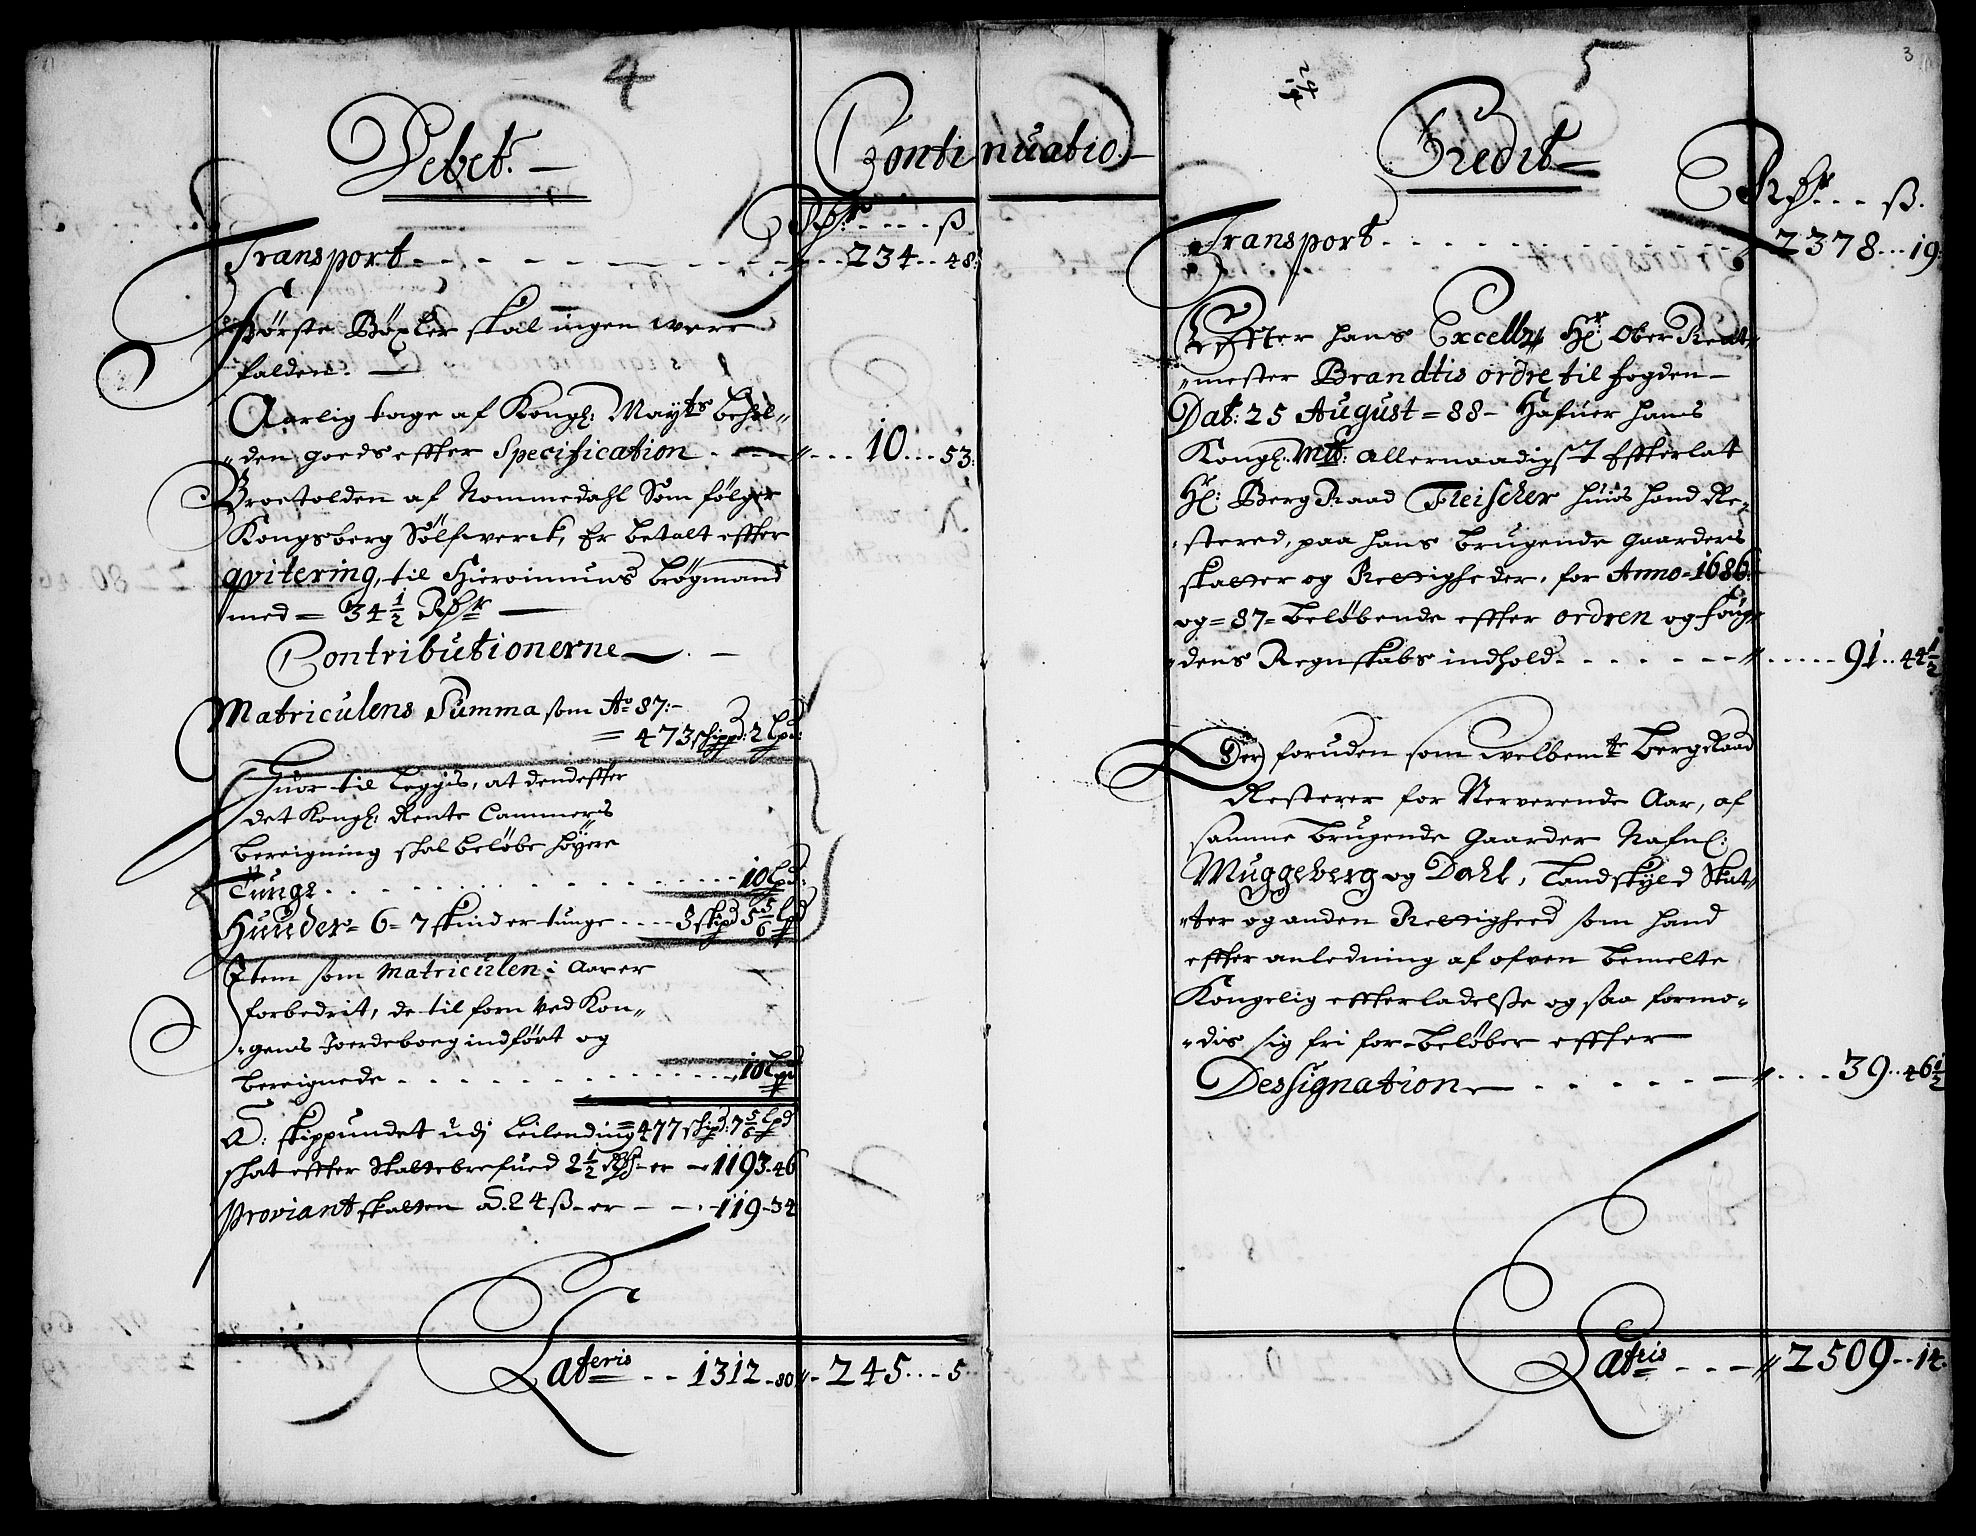 4
Debet. —
Continuatio. —
Rdr. . . . . ß
Transport. . . . 234 . . 48.
Første Bøxler skal ingen were
falden. —
Aarlig tage af Kongl: Mayts behol„
„den goeds effter Specification . . . . 10 . . . 53.
Broetolden af Nommedahl Som følger
Kongsberg Sølfwerck, Er betalt effter
qvitering, til Hieronimus Brøgmand
med = 34 1/2 Rdr —
Contributionerne —. —
Matriculens Summa som Ao 87:-
= 473 schippd: 2 Lpd:
Huor til Leggis, at dendeffter
det Kongl: Rente Cammers
bereigning skal beløbe høyere
Tunge . . . . . . 10 Lpd:
Huuder = 6 = 7 skinder tunge . . . . 3 skipd 5 5/6 Lpd
Item som Matriculen i Aar er
forbedrit, de til forn ved Kon„
„gens Joerdeboeg indført og
bereignede . . . . . . 10 Lpd
A: skippundet udj Leilending = 477 schipd: 7 5/6 Lpd
skat effter Skattebrefued 2 1/2 Rdr er — 1193-46
Proviant skatten a. 24 ß- er — — . -119-34
Lateris . . . 1312 -80 „. 245 . . . 5.
5
3
Credit —
Rdr. . . . ß.
Transport . . . . . . 2378 . . . 19.
Effter hans Excellz Hr: Ober Rent„
„mester Brandtis ordre til fogden —
Dat: 25 August = 88 - Hafuer hans
Kongl: Mtt: allernaadigst Effterlat
Hr: Berg Raad Fleischer huis hand Re„
„stered, paa hans brugende gaarders
skatter og Rettigheder, for Anno = 1686.
og = 87 = beløbende effter ordren og foug„
„dens Regnskabs indhold . . . . . . 91 . . 44 1/2
Der foruden som Welbemte Berg Raad
Resterer for Nerverende Aar, af
samme brugende gaarder Nafnl:
Muggeberg og Dahl, Landskyld Skat„
„ter og anden Rettigheed som hand
effter anledning af ofven bemelte
Kongelig effterladelsse og saa formo„
„dis sig fri for - beløber effter
Dessignation — . . . . . . 39 . . 46 1/2
Latris . . . — „ 2509 . . 14.